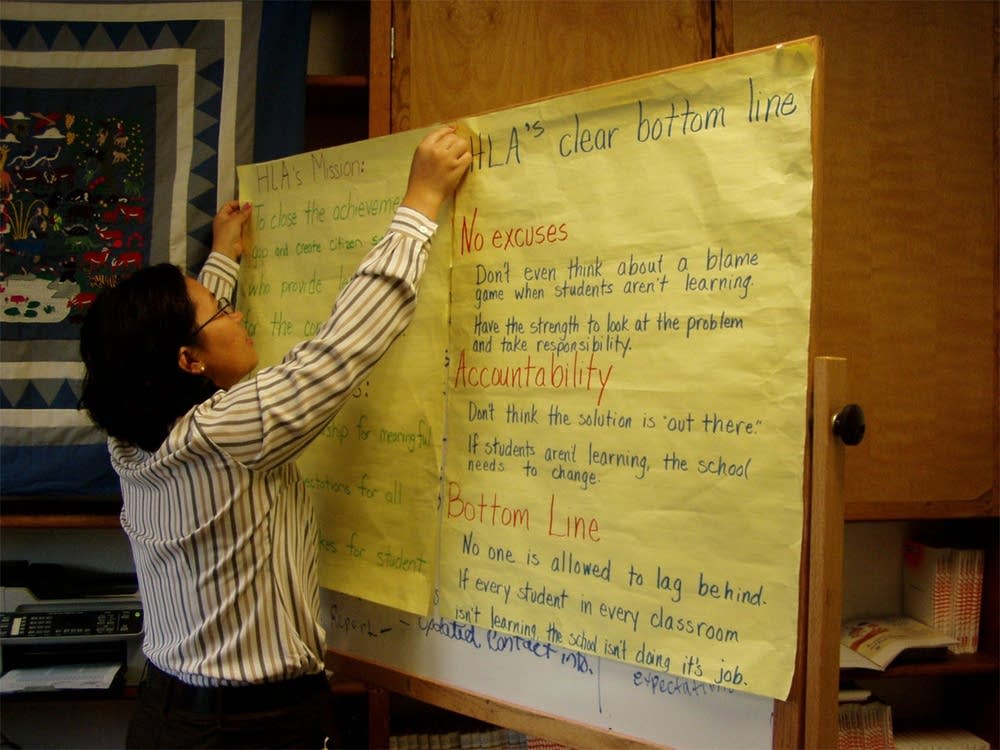 HLA's Mission:
To close the achieveme
gap and create citizen s
who provide le
for the co
s:
ship for meaningful
ectations for all
kes for student
HLA's clear bottom line
No excuses
Don't even think about a blame
game when students aren't learning.
Have the strength to look at the problem
and take responsibility.
Accountability
Don't think the solution is "out there."
If students aren't learning, the school
needs to change.
Bottom Line
No one is allowed to lag behind.
If every student in every classroom
isn't learning, the school isn't doing it's job.
Report - - Updated Contact info.
expectations